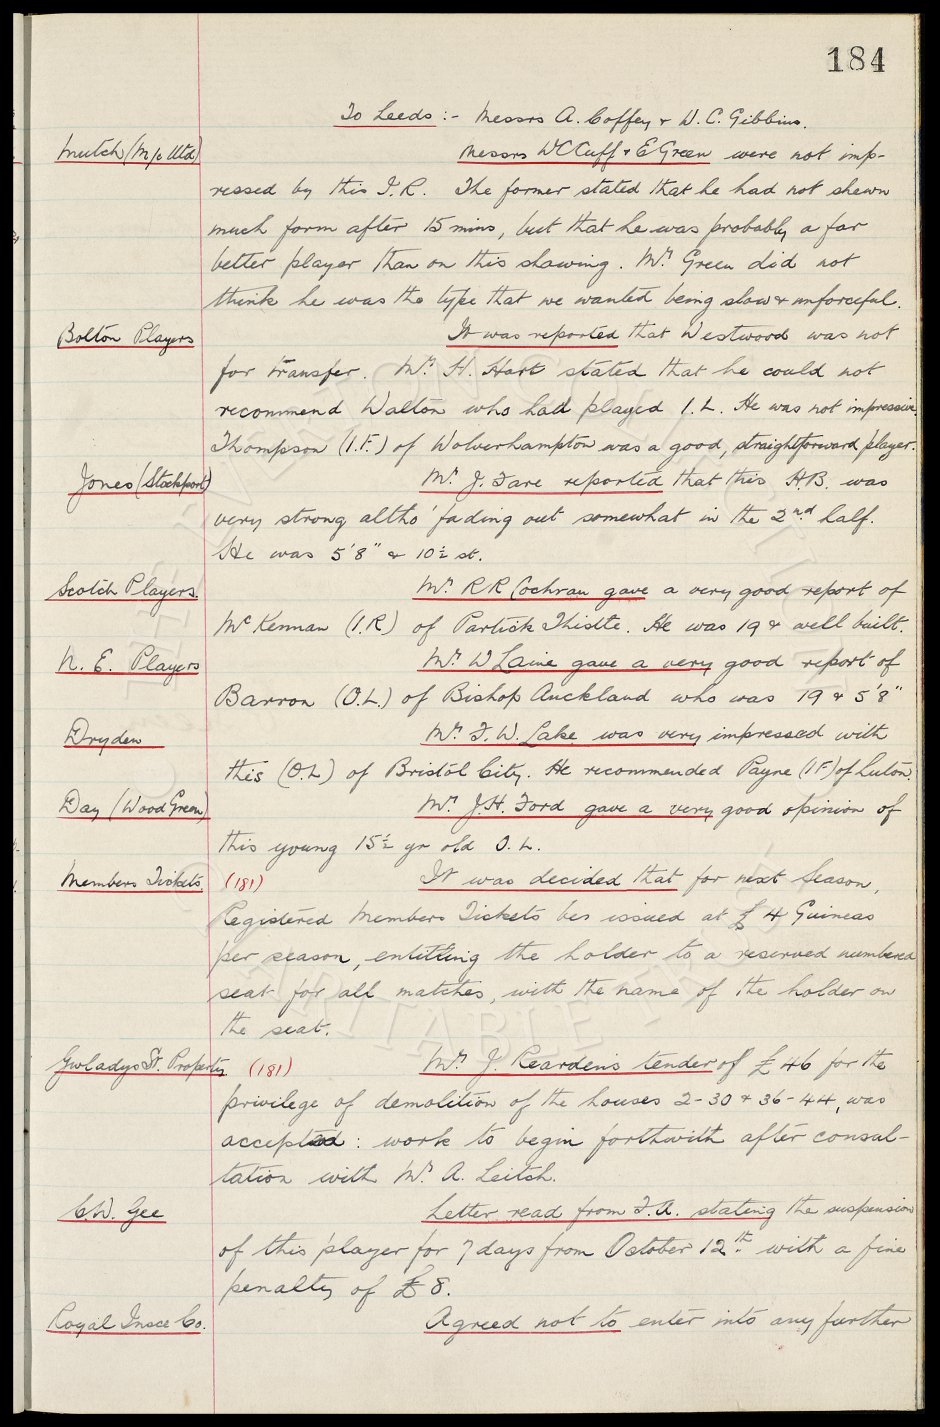 184
To Leeds :- Messrs A. Coffey & W. C. Gibbins.
Mutch (M/c Utd) Messrs W C Cuff & E Green were not imp-
ressed by this I.R. The former stated that he had not shewn
much form after 15 mins, but that he was probably a far
better player than on this showing. Mr. Green did not
think he was the type that we wanted being slow & unforceful.
Bolton Players It was reported that Westwood was not
for transfer. Mr. H. Hart stated that he could not
recommend Walton who had played I.L. He was not impressive.
Thompson (I.F.) of Wolverhampton was a good, straightforward player.
Jones (Stockport) Mr. J. Fare reported that this H.B. was
very strong altho' fading out somewhat in the 2nd half.
He was 5'8" & 10½ st.
Scotch Players. Mr. R R Cochran gave a very good report of
McKennan (I.R) of Partick Thistle. He was 19 & well built.
N. E. Players Mr. W Laine gave a very good report of
Barron (O.L.) of Bishop Auckland who was 19 & 5'8"
Dryden Mr. F. W. Lake was very impressed with
this (O.L) of Bristol City. He recommended Payne (I F) of Luton
Day (Wood Green) Mr. J. H. Ford gave a very good opinion of
this young 15½ yr old O. L.
Members Tickets (181) It was decided that for next Season,
Registered Members Tickets be issued at £4 Guineas
per season, entitling the holder to a reserved numbered
seat for all matches, with the name of the holder on
the seat.
Gwladys St. Property (181) Mr. J. Reardens tender of £46 for the
privilege of demolition of the houses 2-30 & 36-44, was
accepted : work to begin forthwith after consul-
tation with Mr. A. Leitch.
C. W. Gee Letter read from F.A. stating the suspension
of this player for 7 days from October 12th. with a fine
penalty of £8.
Royal Insce Co. Agreed not to enter into any further